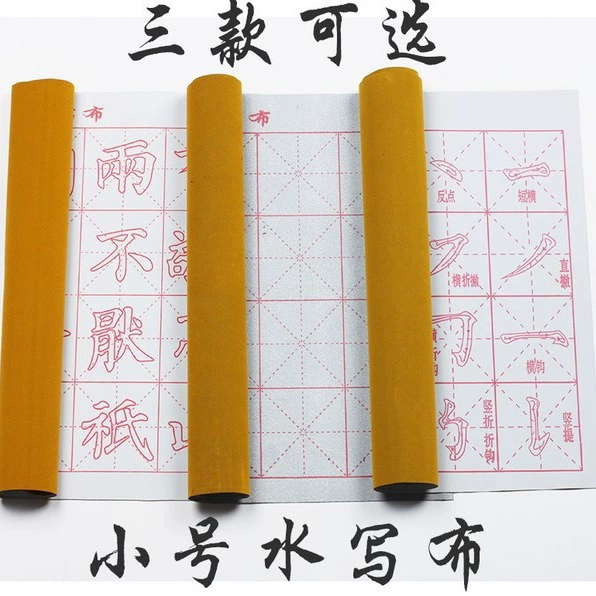 三款可选
布
布
兩
不
厭
祇
反点
短横
横折撇
直撇
横钩
竖折折钩
竖提
小号水写布